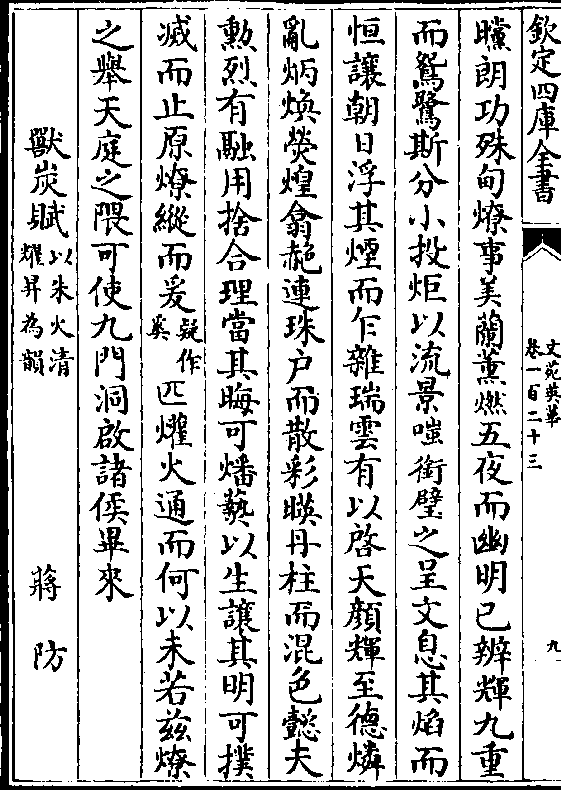 欽定四庫全書
文苑英華
卷一百二十三
九
曭朗功殊甸燎事美蘭薰燃五夜而幽明已辨輝九重
而鴛鷺斯分小投炬以流景嗤銜璧之呈文息其焰而
恒讓朝日浮其煙而乍雜瑞雲有以啓天顔輝至德燐
亂炳煥熒煌翕赩連珠户而散彩暎丹柱而混色懿夫
勲烈有融用捨合理當其晦可燔爇以生讓其明可撲
滅而止原燎縱而爰疑作奚匹爟火通而何以未若兹燎
之舉天庭之隈可使九門洞啟諸侯畢來
獸炭賦以朱火清耀昇為韻
蔣防